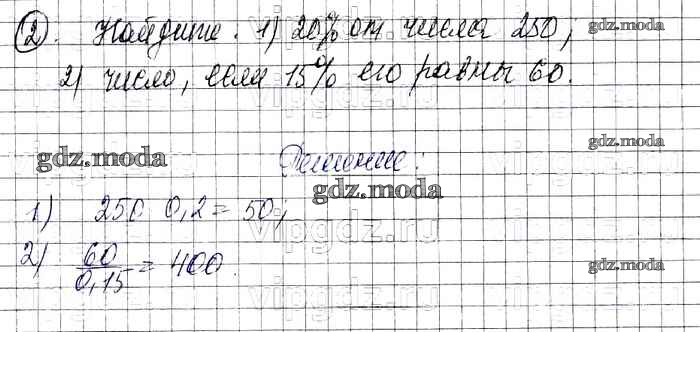 2. Найдите: 1) 20% от числа 250; gdz.moda
2) число, если 15% его равны 60.
gdz.moda
gdz.moda
Решение:
gdz.moda
1) 250 0,2 = 50;
vipgdz.ru
2) 60/0,15 = 400.
gdz.moda
vipgdz.ru